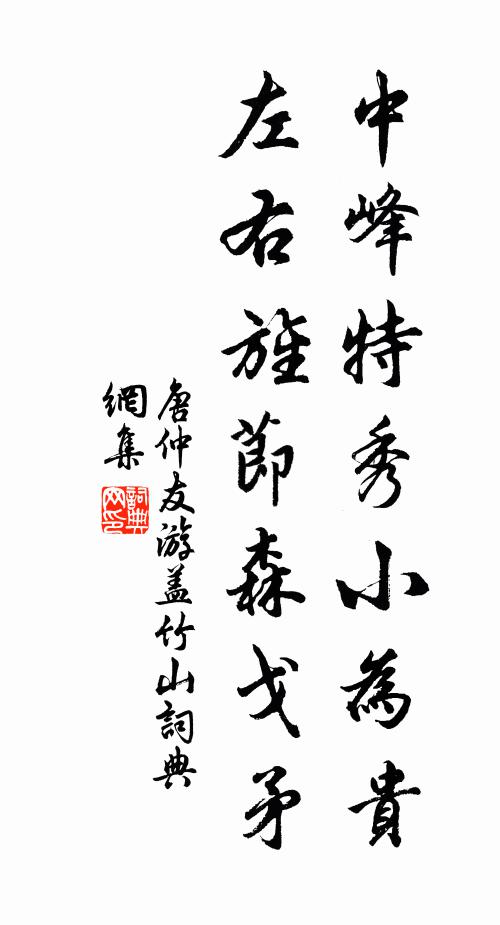 中峰特秀小為貴
左右旌節森戈矛
唐仲友游盖竹山詞典
網集
詞典網印